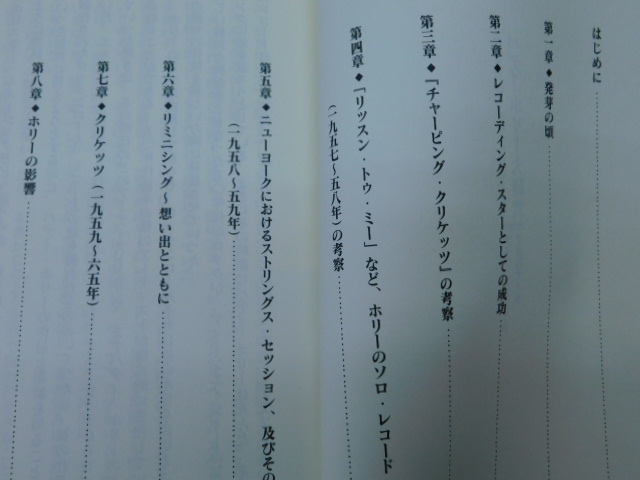 はじめに
第一章◆発芽の頃
第二章◆レコーディング・スターとしての成功
第三章◆『チャーピング・クリケッツ』の考察
第四章◆「リッスン・トゥ・ミー」など、ホリーのソロ・レコード
（一九五七～五八年）の考察
第五章◆ニューヨークにおけるストリングス・セッション、及びその
（一九五八～五九年）
第六章◆リミニシング～想い出とともに
第七章◆クリケッツ（一九五九～六五年）
第八章◆ホリーの影響